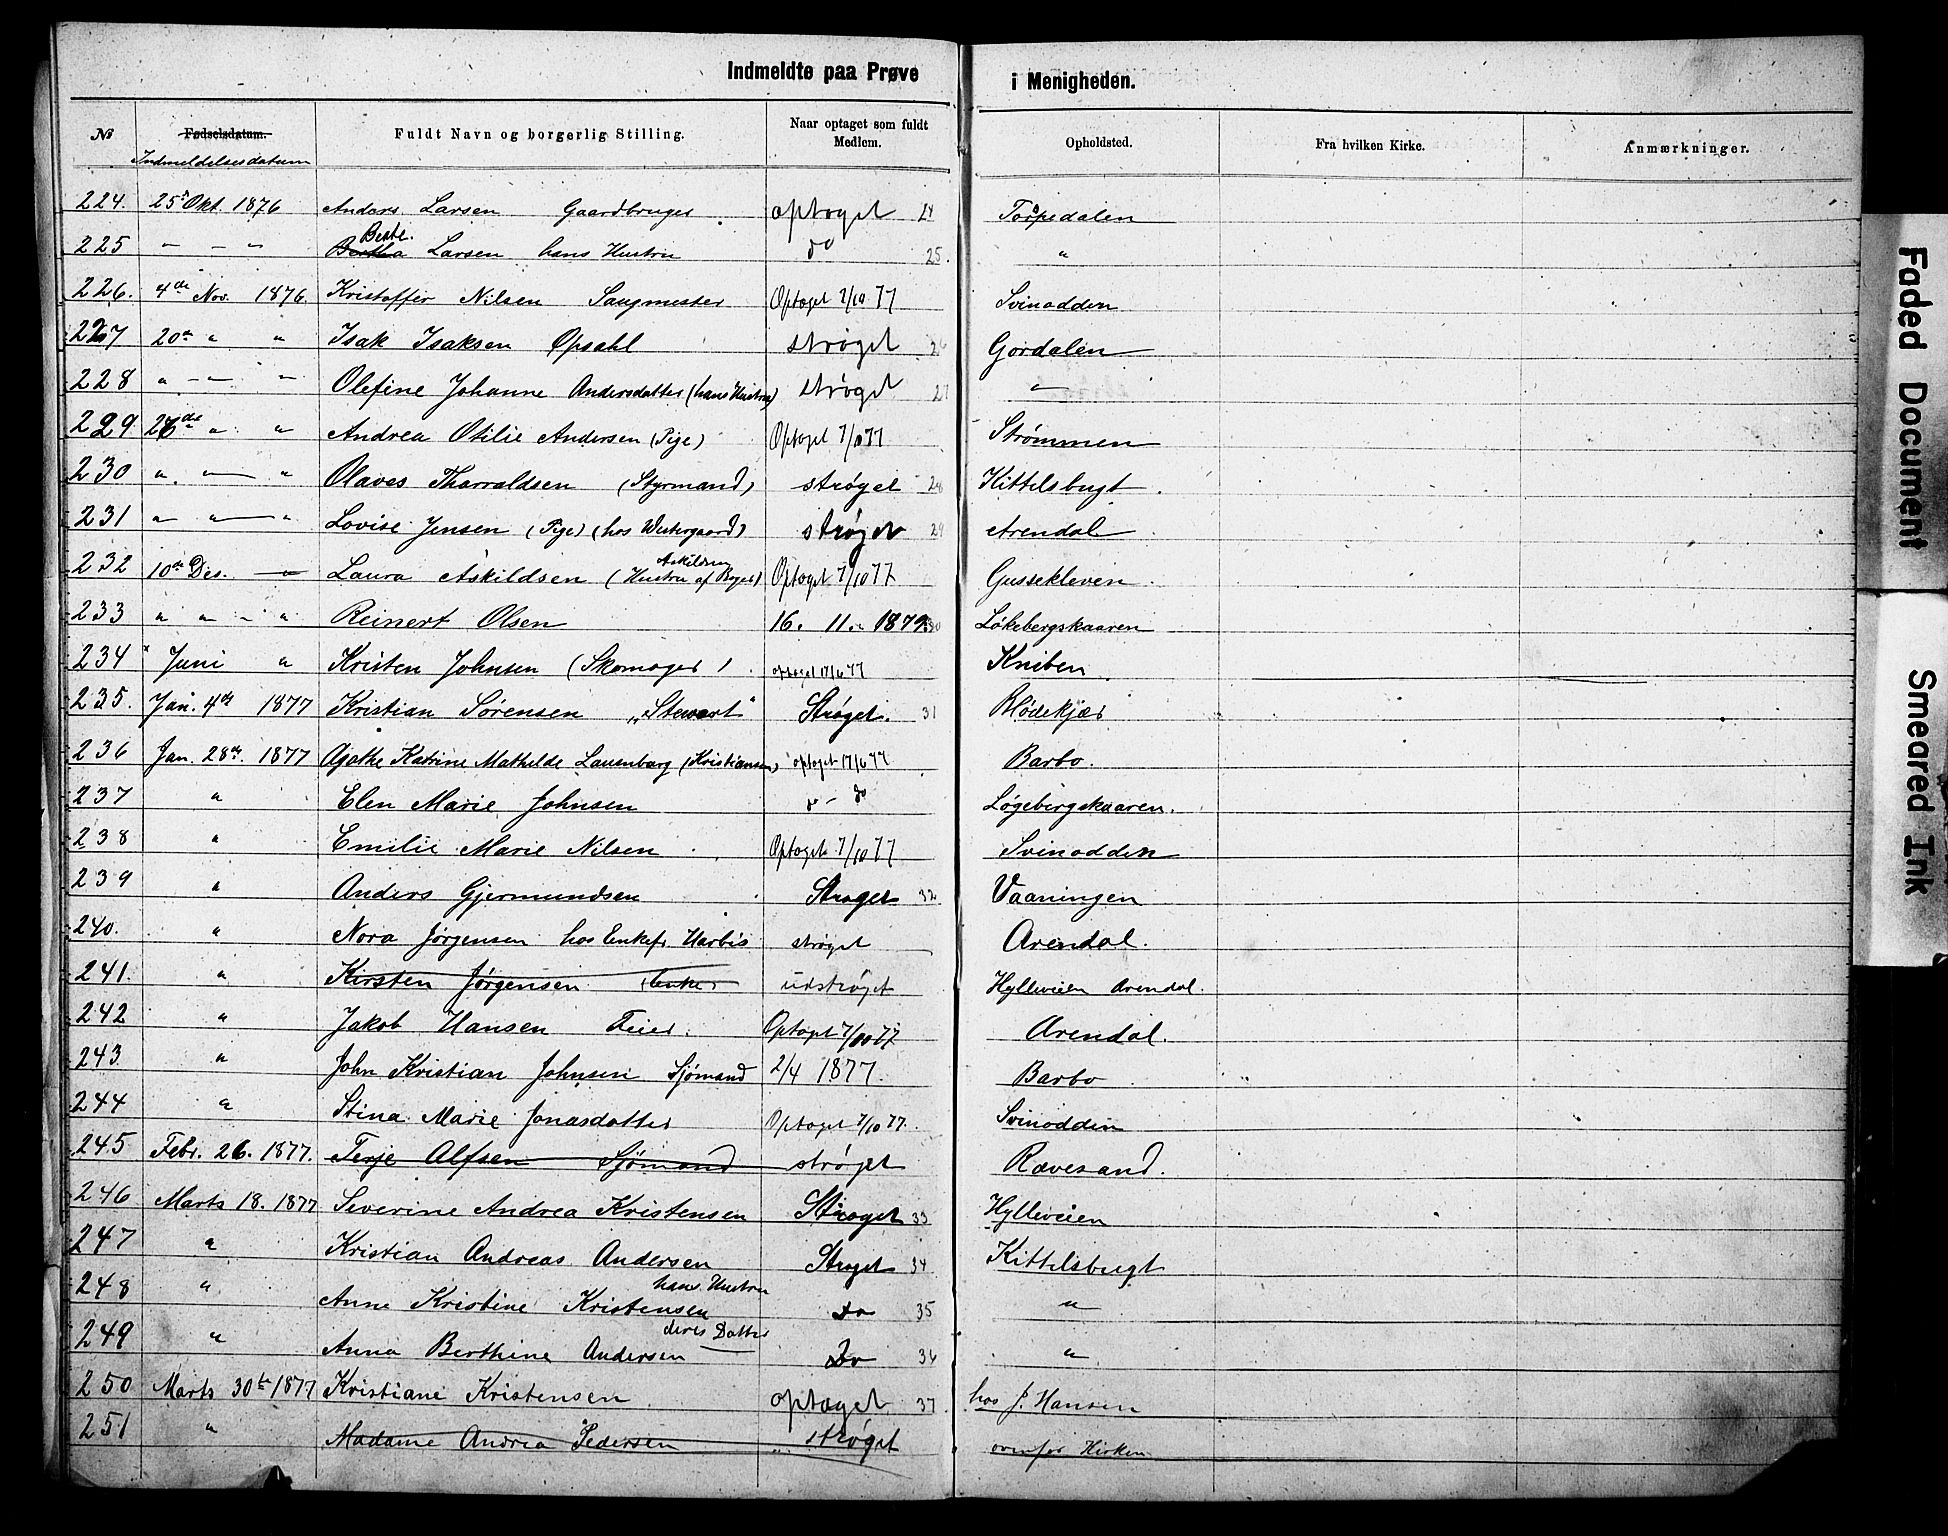 Indmeldte paa Prøve i Menigheden.
№ Fødselsdatum. Indmeldelsesdatum Fuldt Navn og borgerlig Stilling. Naar optaget som fuldt Medlem. Opholdsted. Fra hvilken Kirke. Anmærkninger.
224. 25 Okt. 1876 Anders Larsen Gaardbruger optaget 24 Torpedalen
225 " - " Berthe Larsen hans Hustru do 25. "
226. 4de Nov. 1876. Kristoffer Nilsen Saugmester Optaget 7/10 77 Svinodden
227 20de " " Isak Isaksen Opsahl strøget 26 Gordalen
228 " - " - " Olefine Johanne Andersdatter (hans Hustru) strøget 27 "
229. 26de " " Andrea Otilie Andersen (Pige) Optaget 7/10 77 Strømmen
230 " " - " Olaves Tharraldsen (Styrmand) strøget 28 Kittelsbugt
231 " " - " Lovise Jensen (Pige) (hos Westergaard) strøget 29 Arendal
232 10de Des. - " Laura Askildsen (Hustru af Askildsen) Optaget 7/10 77 Gussekleven
233 " " - " Reinert Olsen 16. 11. 1879 30 Løkebergskaaren
234 * Juni " Kristen Johnsen (Skomager) optaget 17/6 77 Kniben
235. Jan. 4de 1877 Kristian Sørensen „Stewart" Strøget. 31 Blødekjær
236 Jan. 28de. 1877 Agathe Katrine Mathilde Lauenborg (Kristiansen) optaget 17/6 77 Barbo.
237 " Elen Marie Johnsen do - do Løgebergskaaren.
238 " Emilie Marie Nilsen Optaget 7/10 77 Svinodden
239 " Anders Gjermundsen Strøget 32 Vaaningen
240. " Nora Jørgensen hos Enkefr. Harbis strøget Arendal.
241. " Kirsten Jørgensen (Enke) udstrøget Hylleveien Arendal.
242 " Jakob Hansen Feier. Optaget 7/10 77 Arendal.
243. " John Kristian Johnsen Sjømand 2/4 1877. Barbo
244 " Stina Marie Jonasdatter Optaget 7/10 77. Svinodden
245 Febr. 26. 1877. Terje Alfsen Sjømand strøget Rævesand.
246 Marts 18. 1877 Severine Andrea Kristensen Strøget 33 Hylleveien
247 " Kristian Andreas Andersen Strøget 34 Kittelsbugt
248 " Anne Kristine Kristensen hans Hustru do 35 "
249 " Anna Berthine Andersen deres Datter Do 36 "
250 Marts 30te 1877 Kristiane Kristensen optaget 37. hos J. Hansen
251 " Madame Andrea Pedersen " strøget ovenfor Kirken
Faded Document
Smeared Ink